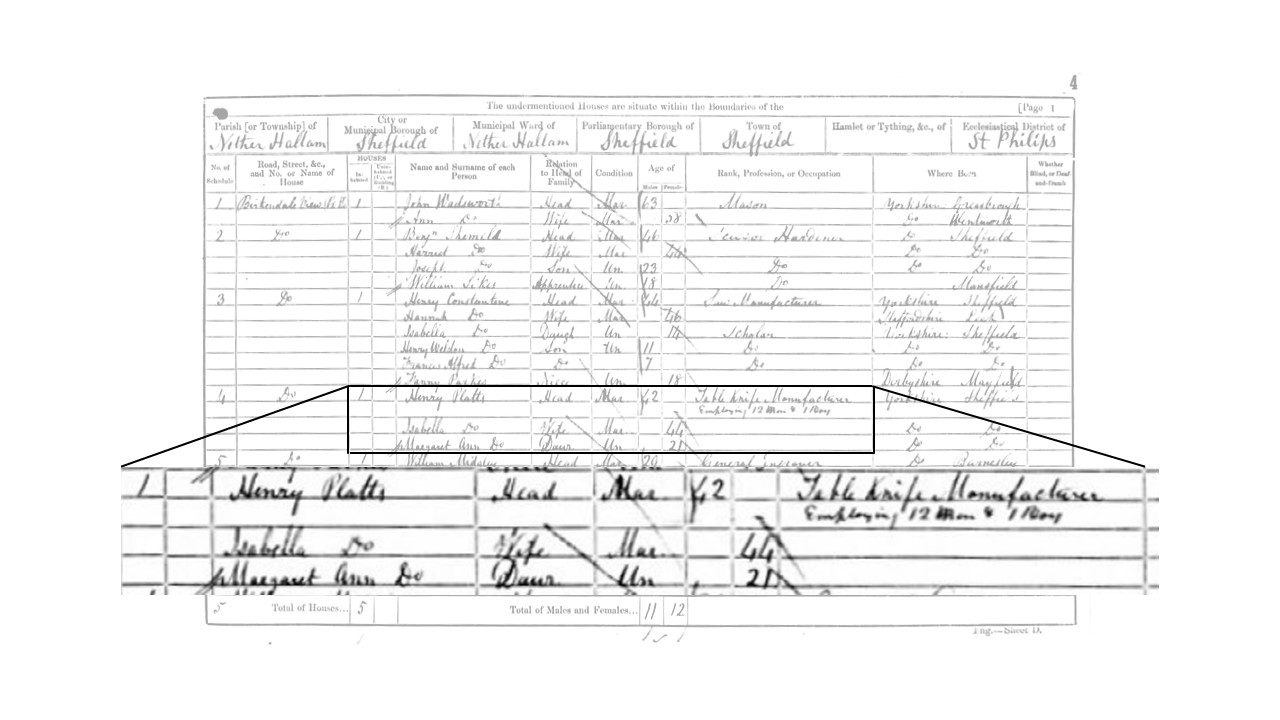 4
The undermentioned Houses are situate within the Boundaries of the [Page 1
Parish [or Township] of City or Municipal Borough of Municipal Ward of Parliamentary Borough of Town of Hamlet or Tything, &c., of Ecclesiastical District of
Nether Hallam Sheffield Nether Hallam Sheffield Sheffield St Philips
No. of Schedule Road, Street, &c., and No. or Name of House HOUSES Name and Surname of each Person Relation to Head of Family Condition Age of Rank, Profession, or Occupation Where Born Whether Blind, or Deaf-and-Dumb
In-habited Males Females
1 Birkendale View 1 John Wadsworth Head Mar 63 Mason Yorkshire Greasbrough
Ann Do Wife Mar 58 Do Wentworth
2 Do 1 Benjn Head Mar 46 Hardener Do Sheffield
Harriet Do Wife Mar 44 Do Do
Joseph Do Son Un 23 Do Do Do
William Sikes Apprentice Un 18 Do Mansfield
3 Do 1 Henry Constantine Head Mar 44 Saw Manufacturer Yorkshire Sheffield
Hannah Do Wife Mar 46 Staffordshire Leek
Isabella Do Daugh Un 14 Scholar Yorkshire Sheffield
Henry Weldon Do Son Un 11 Do Do Do
Francis Alfred Do Do 7 Do Do Do
Fanny Parkes Niece Un 18 Derbyshire Mayfield
4 Do 1 Henry Platts Head Mar 42 Table Knife Manufacturer Yorkshire Sheffield
Employing 12 Men & 1 Boy
Isabella Do Wife Mar 44 Do Do
Margaret Ann Do Daur Un 21 Do Do
5 Do 1 William Head Mar 29 General Engraver Do Barnesley
1 Henry Platts Head Mar 42 Table Knife Manufacturer
Employing 12 Men & 1 Boy
Isabella Do Wife Mar 44
Margaret Ann Do Daur Un 21
5 Total of Houses... 5 Total of Males and Females... 11 12
Eng.—Sheet D.